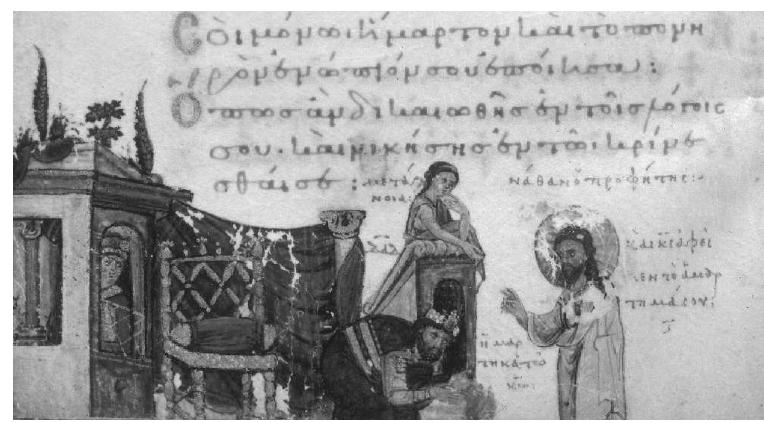 Σοὶ μόνωι ἥμαρτον καὶ τὸ πονη
ρὸν ἐνώπιόν σου ἐποίησα:
Ὅπως ἂν δικαιωθῆς ἐν τοῖς λόγοις
σου· καὶ νικήσης ἐν τῶι κρίνε
σθαί σε:
μετά
νοια:
νάθαν ὁ προφήτης:
δα̅δ
καὶ κ̅ς̅ ἀφεῖ
λεν τὸ ἁμάρ
τημά σου:
ἡμάρ
τηκα τῶ
κ̅ω̅: